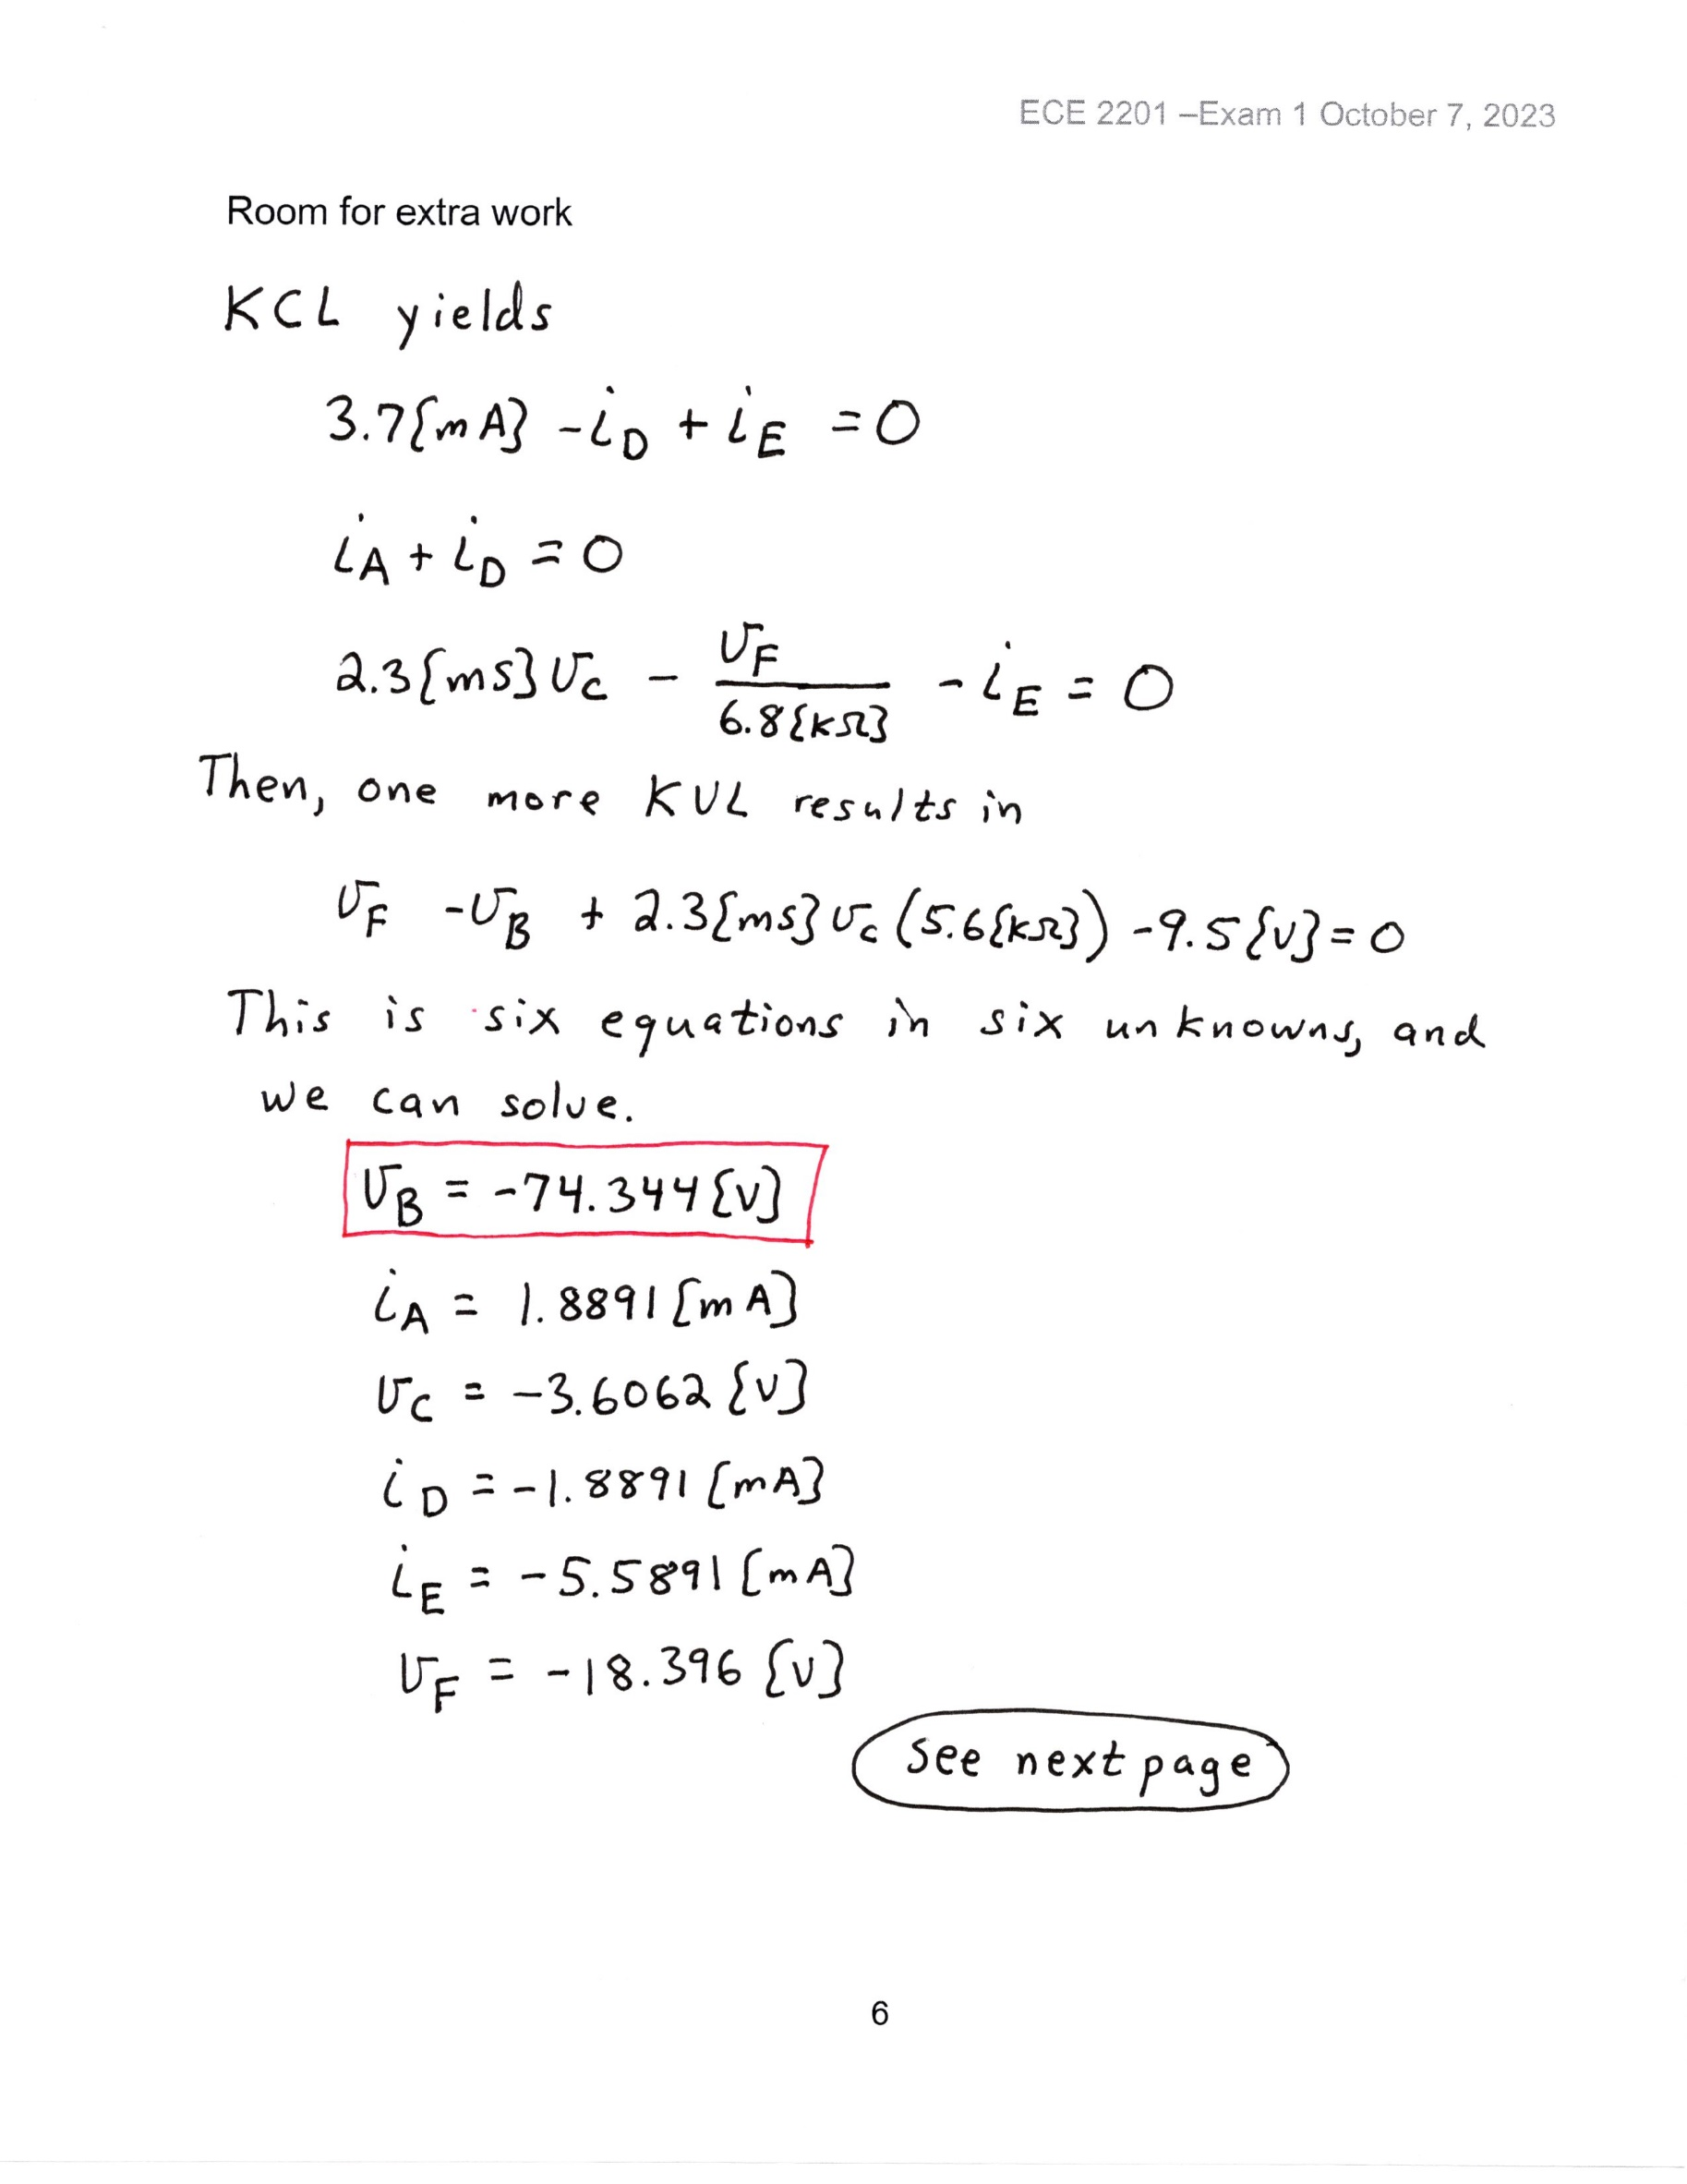 ECE 2201 –Exam 1 October 7, 2023
Room for extra work
KCL yields
3.7[mA] - i_D + i_E = 0
i_A + i_D = 0
2.3[mS] v_C - v_F / 6.8[kΩ] - i_E = 0
Then, one more KVL results in
v_F - v_B + 2.3[mS] v_C (5.6[kΩ]) - 9.5[V] = 0
This is six equations in six unknowns, and
we can solve.
v_B = -74.344[V]
i_A = 1.8891[mA]
v_C = -3.6062[V]
i_D = -1.8891[mA]
i_E = -5.5891[mA]
v_F = -18.396[V]
see next page
6